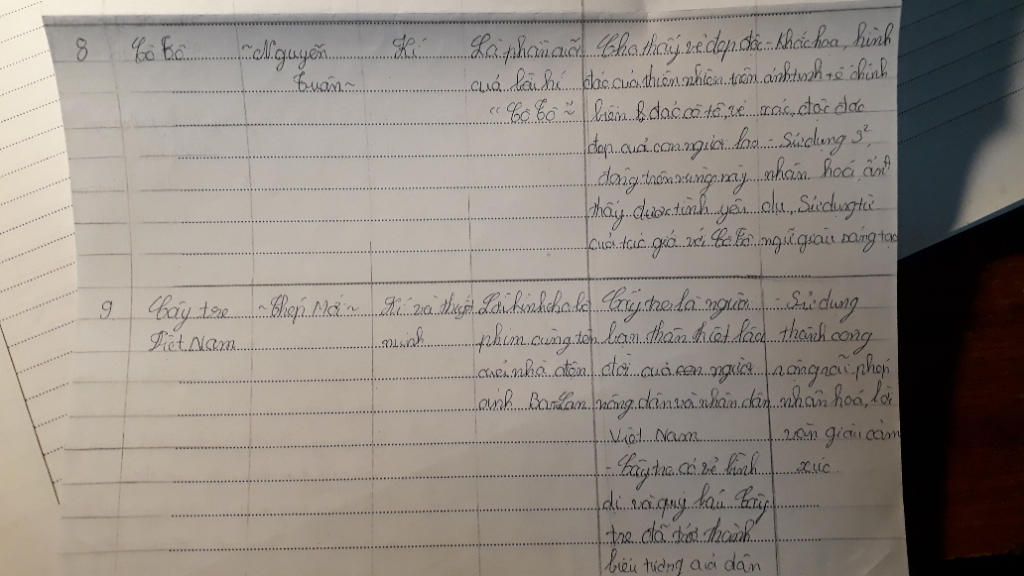 8
Cô Tô
~Nguyễn
Tuân~
Kí
Là phần cuối
của bài kí
"Cô Tô"
Cho thấy vẻ đẹp độc
đáo của thiên nhiên trên
biển & đảo cô tô, vẻ
đẹp của con người lao
động trên vùng này
thấy được tình yêu
của tác giả với Cô Tô
- Khắc hoạ, hình
ảnh tinh tế chính
xác, độc đáo
- Sử dụng s²,
nhân hoá, ẩn
dụ, Sử dụng từ
ngữ giàu sáng tạo
9
Cây tre
Việt Nam
~Thép Mới~
Kí và thuyết
minh
Lời bình cho bộ
phim cùng tên
của nhà điện
ảnh Ba Lan
Cây tre là người
bạn thân thiết lâu
đời của con người
nông dân và nhân dân
Việt Nam
- Cây tre có vẻ bình
dị và quý báu Cây
tre đã trở thành
biểu tượng của dân
- Sử dụng
thành công
phép
nhân hoá, lời
văn giàu cảm
xúc